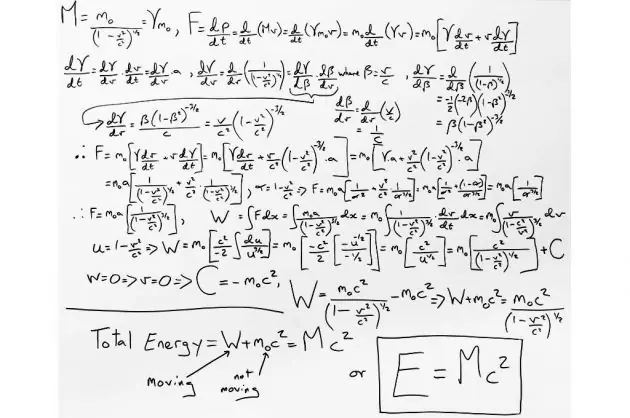 M = m₀/(1 - v²/c²)^1/2 = γm₀ , F = dp/dt = d/dt (Mv) = d/dt (γm₀v) = m₀ d/dt (γv) = m₀[γ dv/dt + v dγ/dt]
dγ/dt = dγ/dv · dv/dt = dγ/dv · a , dγ/dv = d/dv (1/(1-v²/c²)^1/2) = dγ/dβ · dβ/dv where β = v/c , dγ/dβ = d/dβ (1/(1-β²)^1/2)
= -1/2 (-2β)(1-β²)^-3/2
= β(1-β²)^-3/2
→ dγ/dv = β(1-β²)^-3/2 / c = v/c² (1 - v²/c²)^-3/2
dβ/dv = d/dv (v/c)
= 1/c
∴ F = m₀[γ dv/dt + v dγ/dt] = m₀[γ dv/dt + v v/c² (1 - v²/c²)^-3/2 · a] = m₀[γa + v²/c² (1 - v²/c²)^-3/2 · a]
= m₀a[1/(1-v²/c²)^1/2 + v²/c² · 1/(1-v²/c²)^3/2] , α = 1 - v²/c² ⇒ F = m₀a[1/α^1/2 + v²/c² 1/α^3/2] = m₀a[1/α^1/2 + (1-α)/α^3/2] = m₀a[1/α^3/2]
∴ F = m₀a[1/(1-v²/c²)^3/2] , W = ∫F dx = ∫ m₀a/(1-v²/c²)^3/2 dx = m₀∫ 1/(1-v²/c²)^3/2 · dv/dt dx = m₀∫ v/(1-v²/c²)^3/2 dv
u = 1 - v²/c² ⇒ W = m₀[c²/-2 ∫ du/u^3/2] = m₀[-c²/2 [u^-1/2 / -1/2]] = m₀[c²/u^1/2] = m₀[c²/(1-v²/c²)^1/2] + C
w=0 ⇒ v=0 ⇒ C = -m₀c² , W = m₀c²/(1-v²/c²)^1/2 - m₀c² ⇒ W + m₀c² = m₀c²/(1-v²/c²)^1/2
Total Energy = W + m₀c² = Mc²
moving
not moving
or
E = Mc²